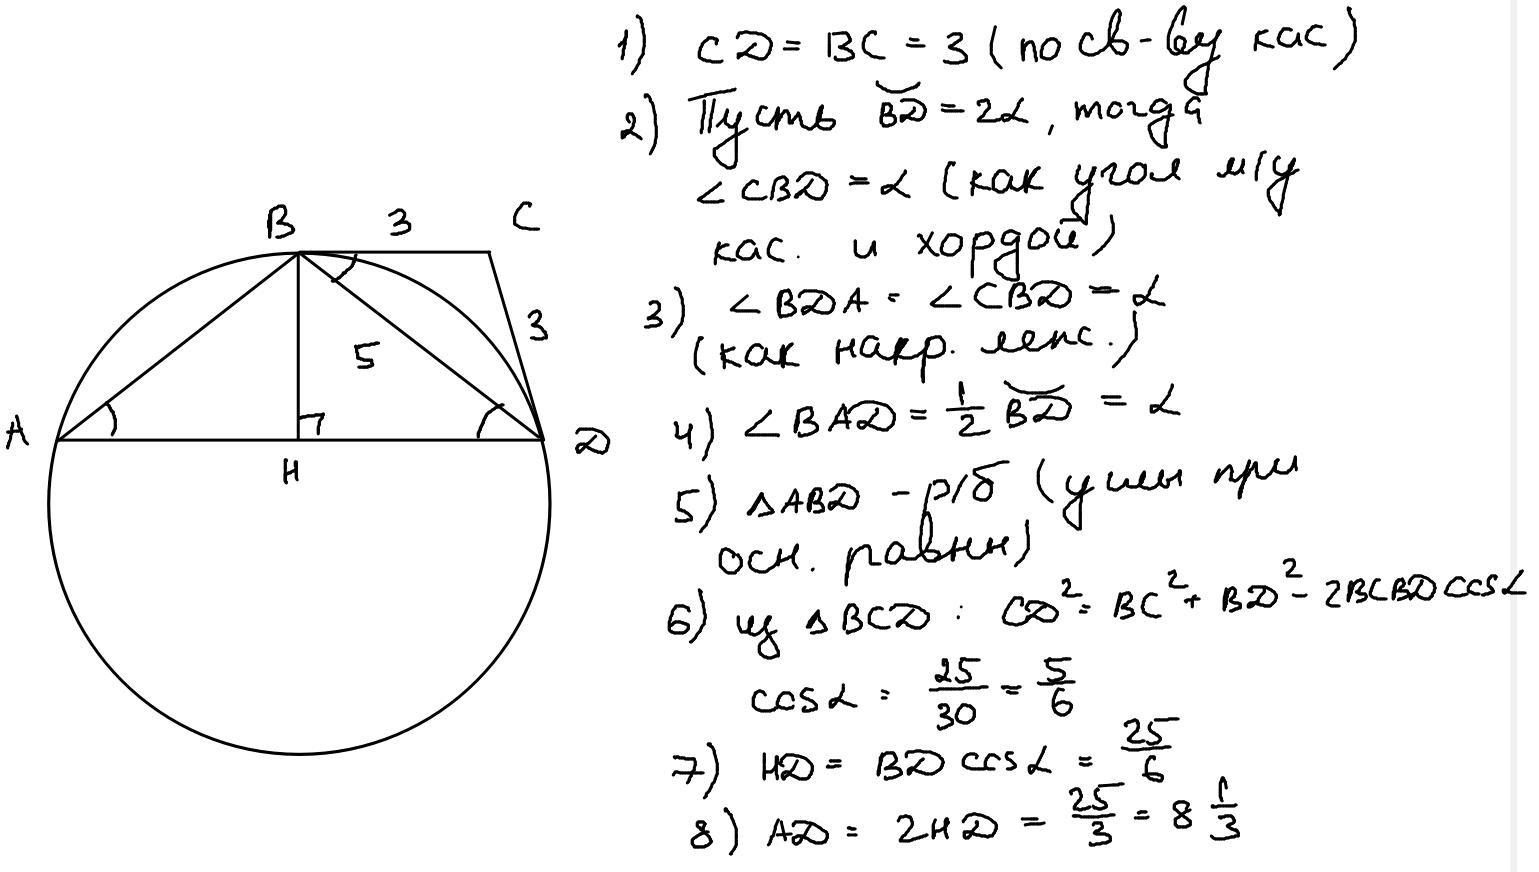 1) CD = BC = 3 (по св-ву кас)
2) Пусть BD = 2α, тогда
∠CBD = α (как угол м/у
кас. и хордой)
3) ∠BDA = ∠CBD = α
(как накр. леж.)
4) ∠BAD = 1/2 BD = α
5) △ABD - р/б (углы при
осн. равны)
6) из △BCD : CD² = BC² + BD² - 2BCBD cos α
cos α = 25/30 = 5/6
7) HD = BD cos α = 25/6
8) AD = 2HD = 25/3 = 8 1/3
B 3 C
3
5
A H D